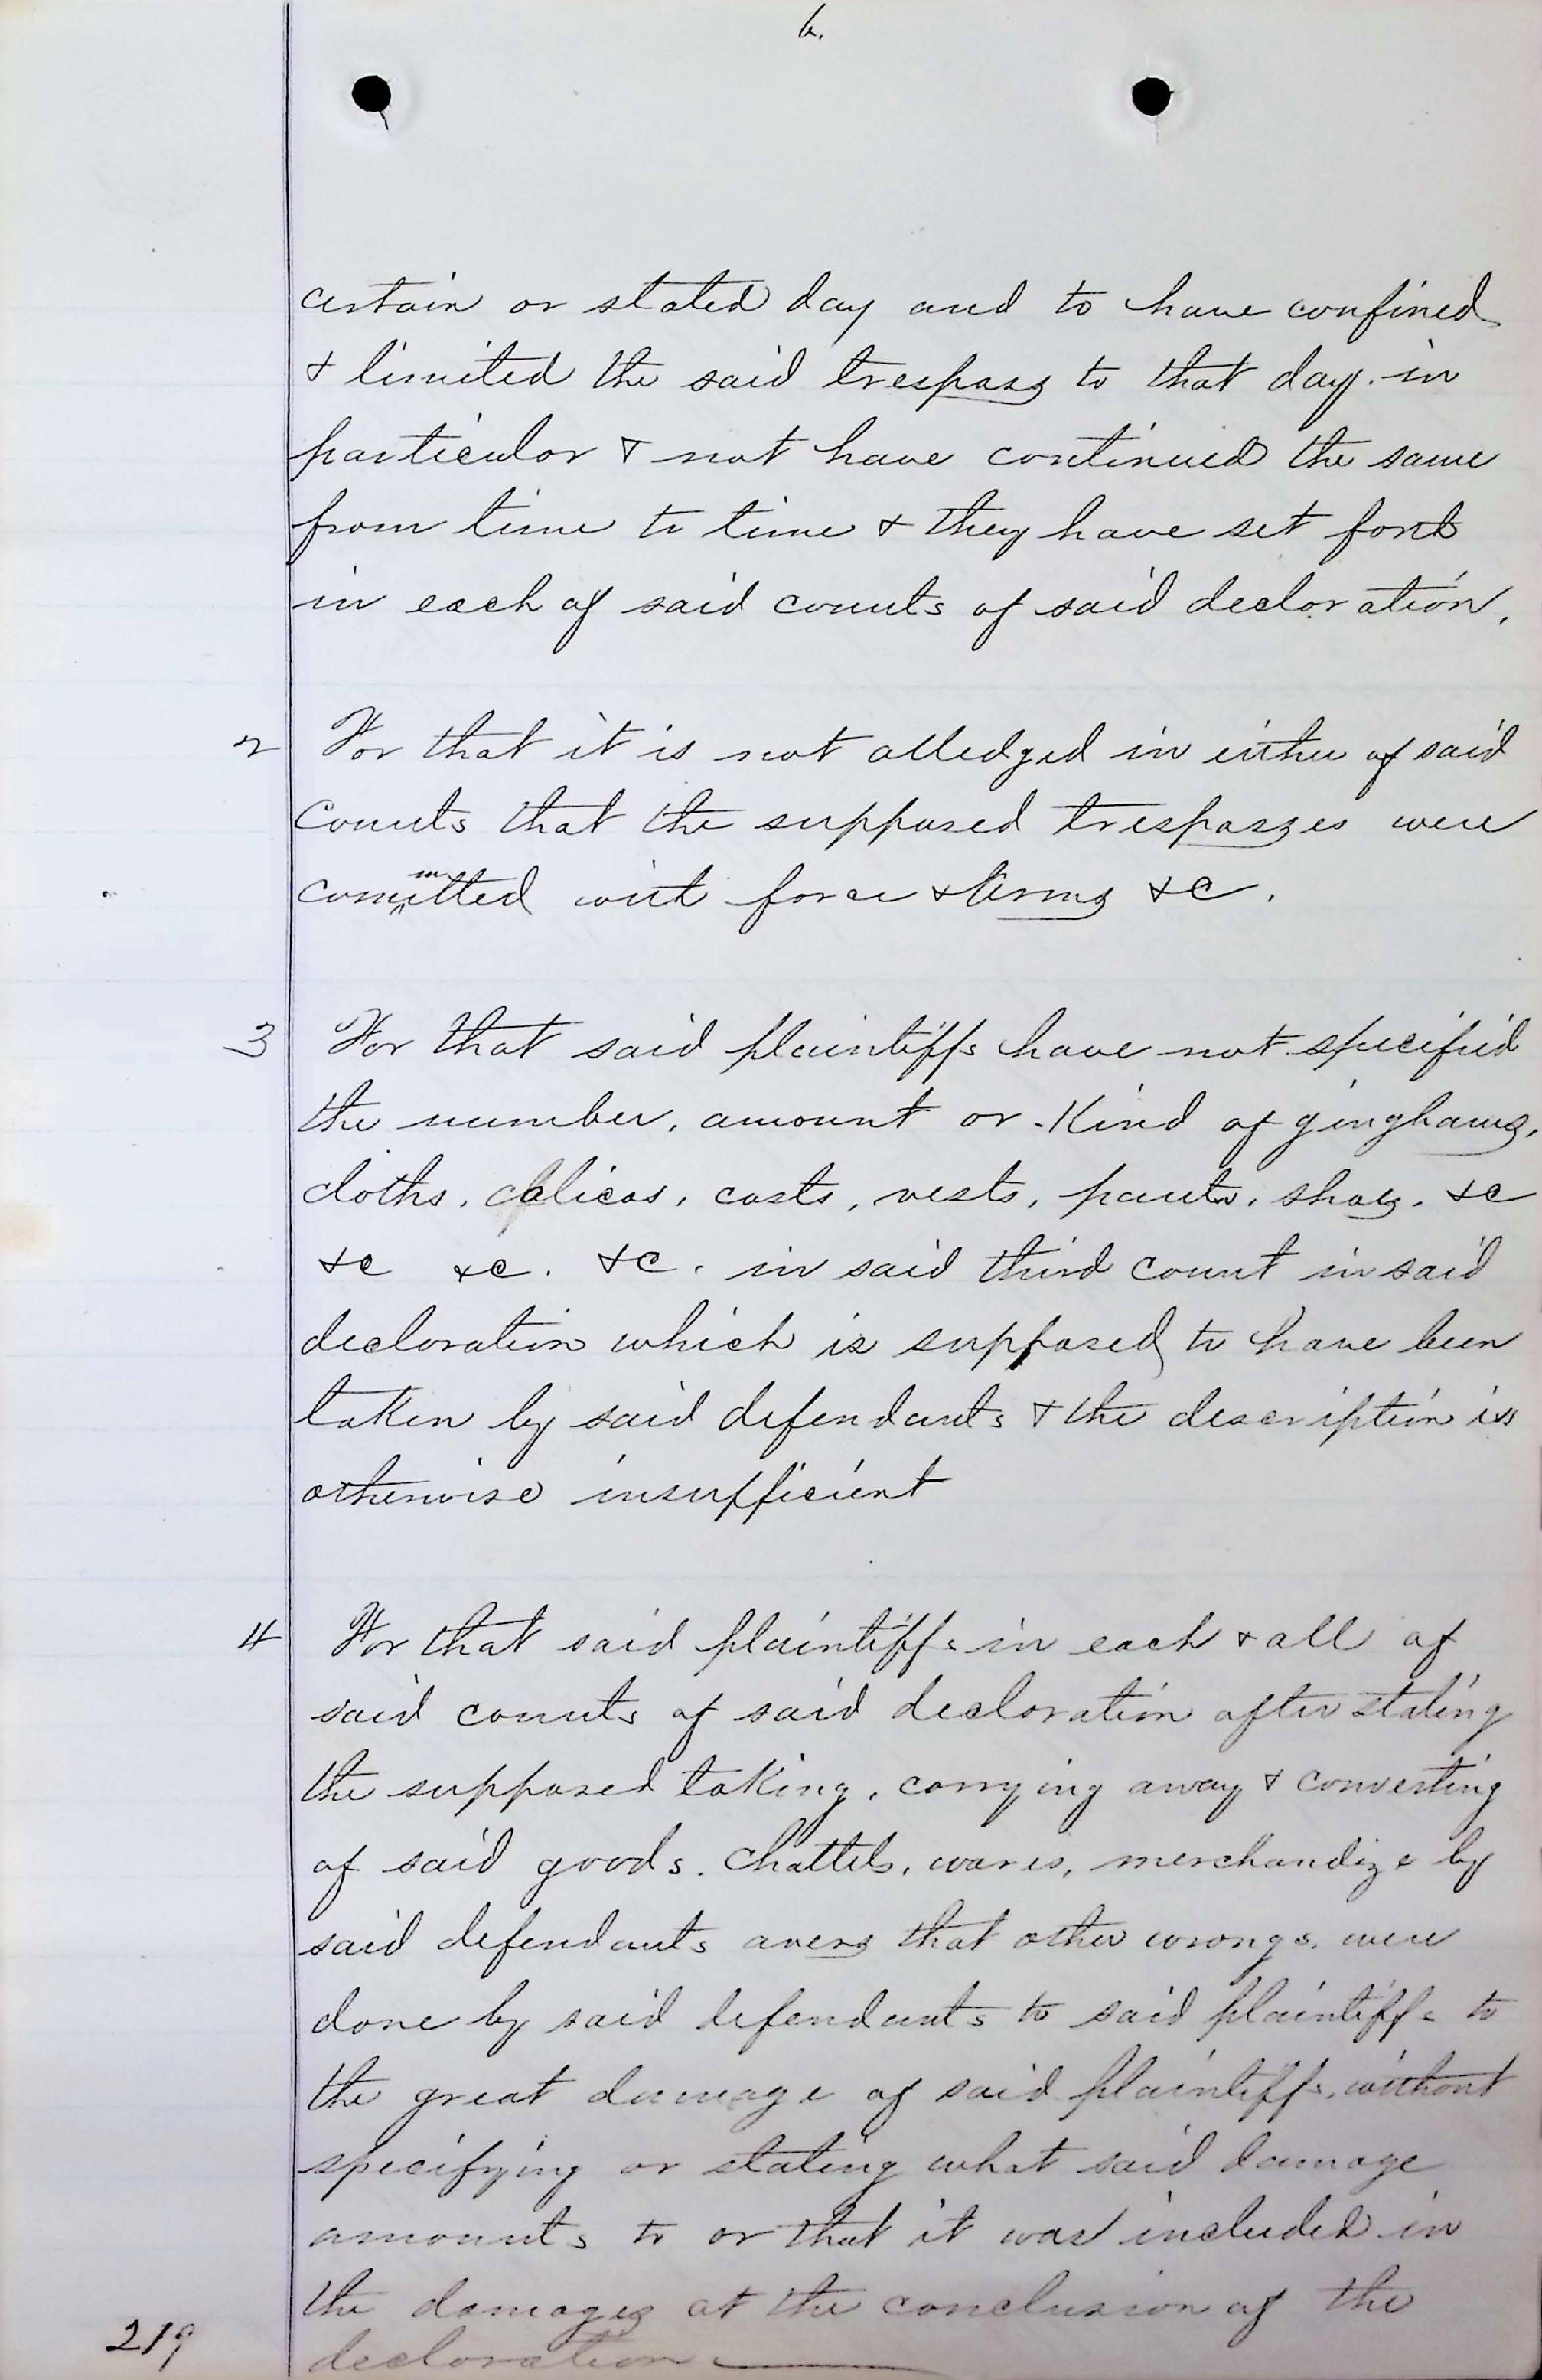 6.
certain or stated day and to have confined
& limited the said trespass to that day. in
particular & not have continued the same
from time to time & they have set forth
in each of said counts of said declaration.
2 For that it is not alledged in either of said
Counts that the supposed trespasses were
committed with force & Arms &c.
3 For that said plaintiffs have not specified
the number, amount or Kind of ginghams,
cloths, calicos, coats, vests, pants, shoes, &c
&c &c. &c. in said third count in said
declaration which is supposed to have been
taken by said defendants & the description is
otherwise insufficient
4 For that said plaintiffs in each & all of
said counts of said declaration after stating
the supposed taking, carrying away & converting
of said goods. Chattels, wares, merchandize by
said defendants avers that other wrongs. were
done by said defendants to said plaintiffs to
the great damage of said plaintiffs, without
specifying or stating what said damage
amounts to or that it was included in
the damages at the conclusion of the
declaration
219